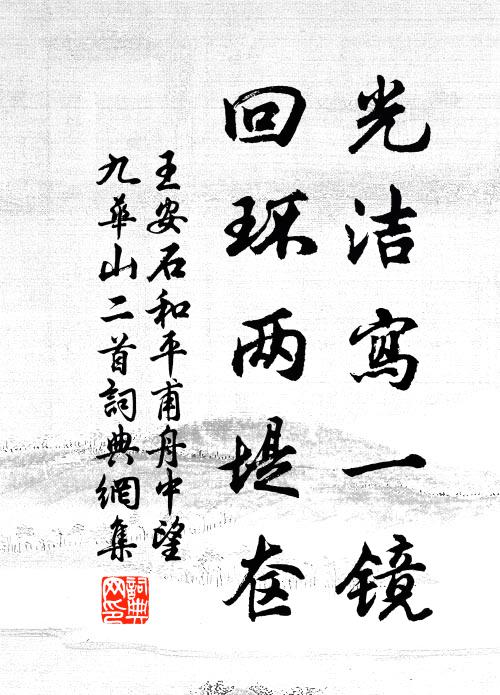 光洁寫一镜
回环两堤奁
王安石和平甫舟中望
九華山二首詞典網集
詞典
网印